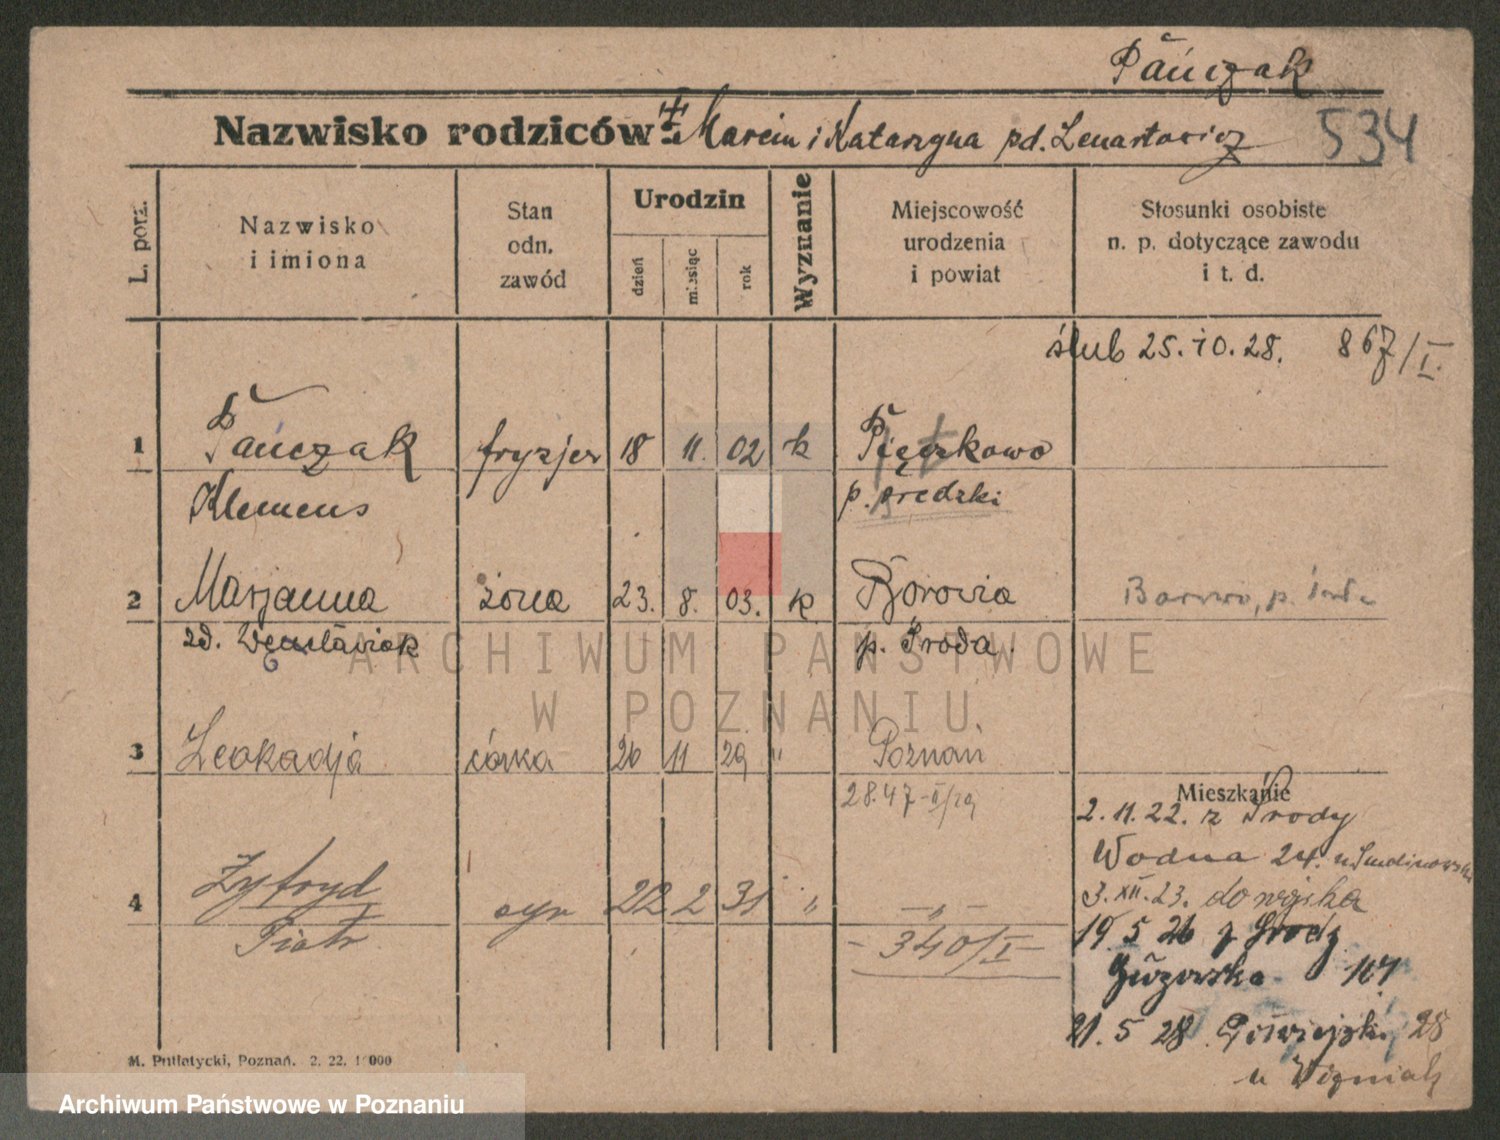 Pańczak
Nazwisko rodziców: Marcin i Katarzyna zd. Lenartowicz 534
L. porz.
Nazwisko i imiona
Stan odn. zawód
Urodzin
dzień miesiąc rok
Wyznanie
Miejscowość urodzenia i powiat
Stosunki osobiste n. p. dotyczące zawodu i t. d.
ślub 25. 10. 28. 867/I.
1 Pańczak fryzjer 18 11. 02 k Pięczkowo
Klemens p. średzki
2 Marjanna żona 23. 8. 03. k Borowia
zd. p. Środa.
3 Leokadja córka 26 11 29 " Poznań
28.47-II/29
Mieszkanie
2. 11. 22. z Środy
Wodna 24. u
3. XII. 23. do wojska
4 Zyfryd syn 22 2 31 " — " —
Piotr - 340/I -
19 5 26 z Środy
107
21. 5 28 25
u Woźniak
M. Putiatycki, Poznań. 2. 22. 1000
ARCHIWUM PAŃSTWOWE
W POZNANIU
Archiwum Państwowe w Poznaniu